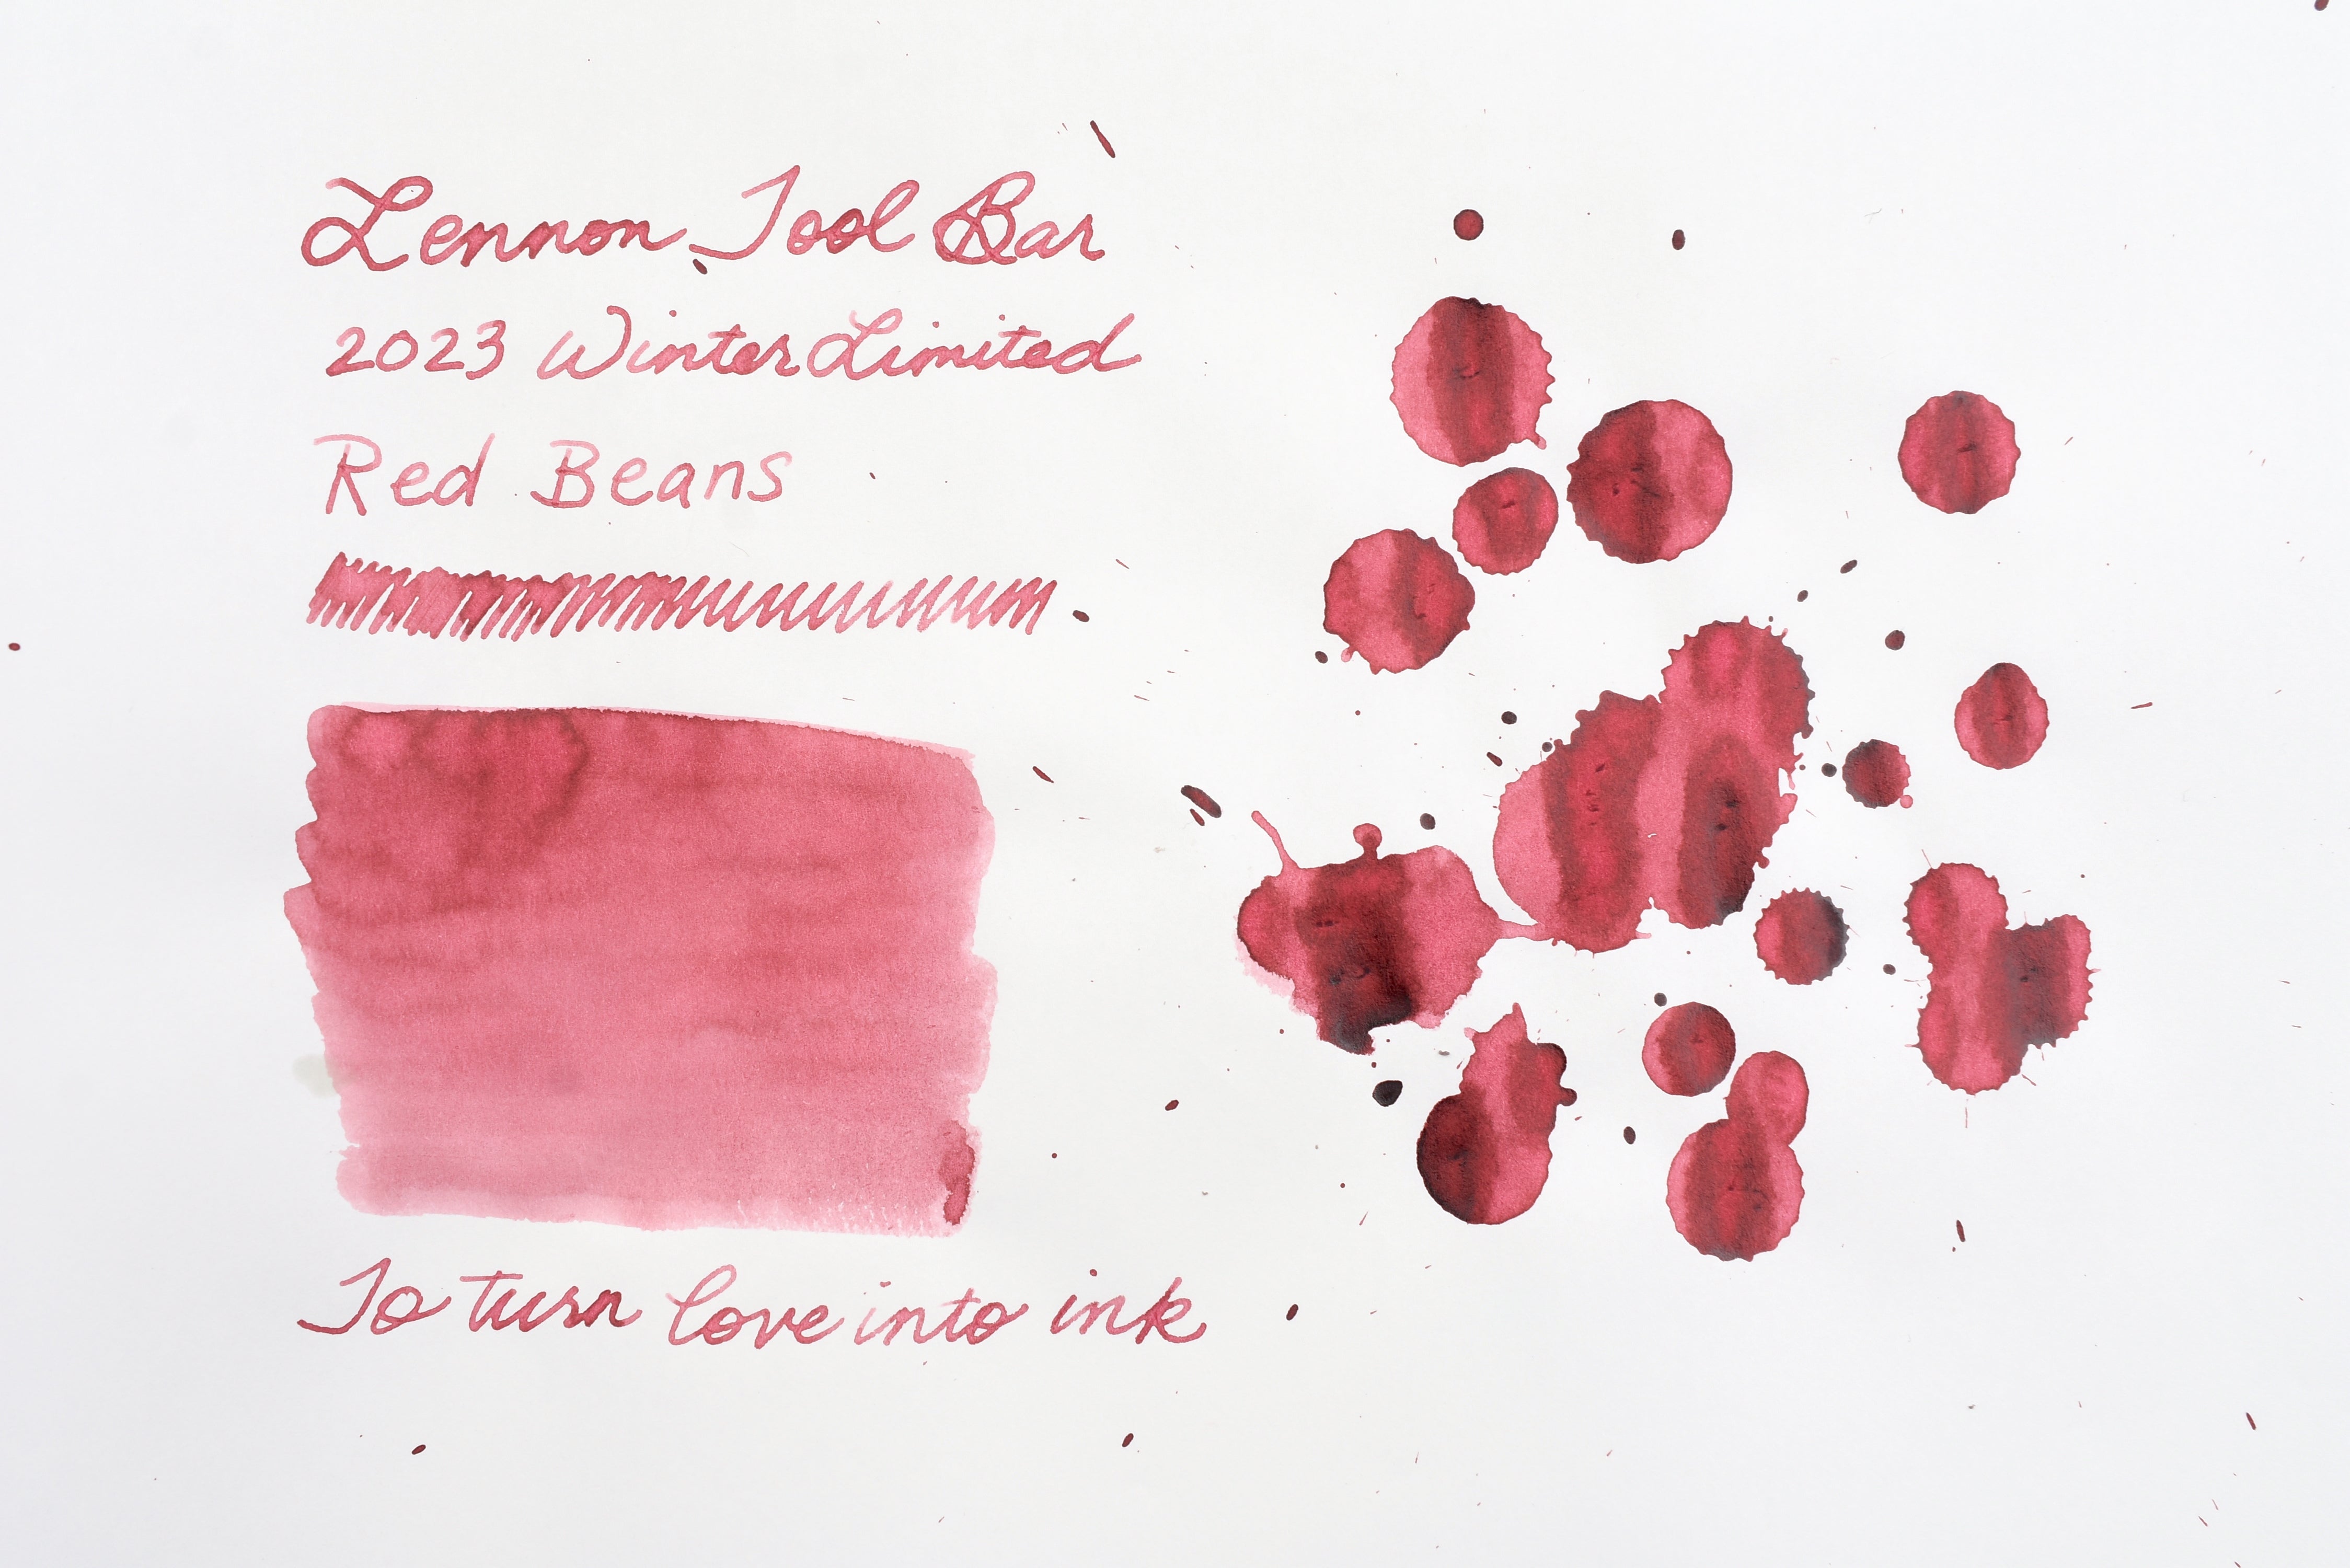 Lennon Tool Bar
2023 Winter Limited
Red Beans
To turn love into ink